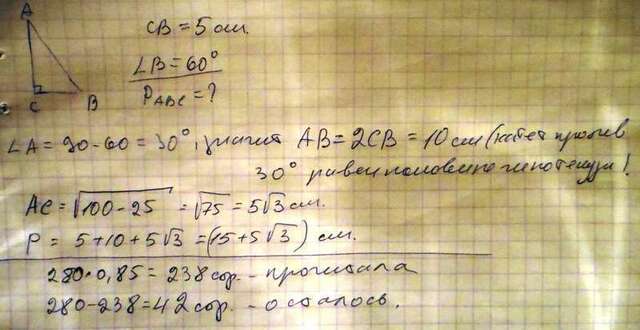 A
CB = 5 см.
∠B = 60°
P ABC = ?
C B
∠A = 90-60 = 30°, значит AB = 2CB = 10 см (катет против
30° равен половине гипотенузы!
AC = √100-25 = √75 = 5√3 см.
P = 5+10+5√3 = (15+5√3) см.
280·0,85 = 238 стр. - прочитала
280-238 = 42 стр. - осталось.